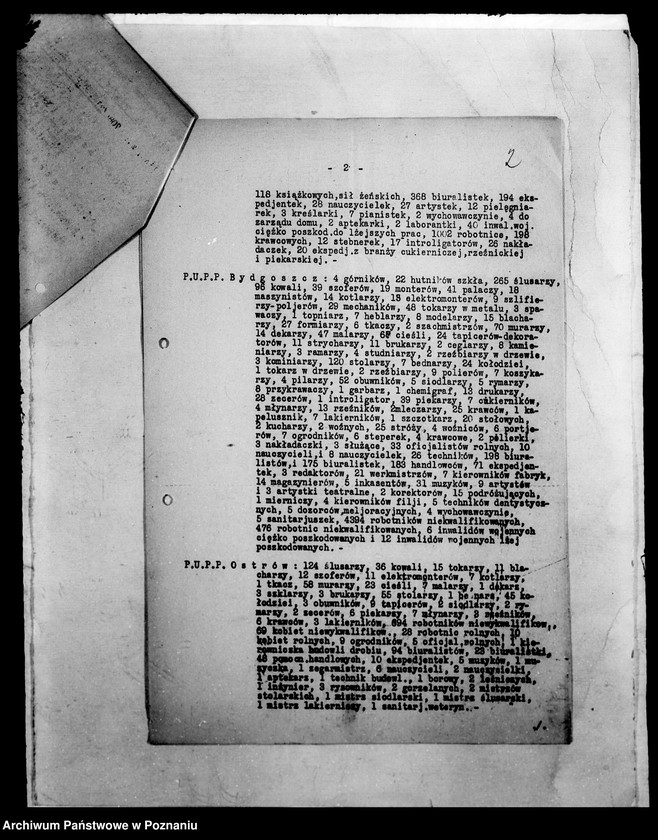 2
- 2 -
118 książkowych,sił żeńskich, 368 biuralistek, 194 eks-
pedjentek, 28 nauczycielek, 27 artystek, 12 pielęgnia-
rek, 3 kreślarki, 7 pianistek, 2 wychowawczynie, 4 do
zarządu domu, 2 aptekarki, 2 laborantki, 40 inwal.woj.
ciężko poszkod.do lżejszych prac, 1002 robotnice, 198
krawcowych, 12 stebnerek, 17 introligatorów, 26 nakła-
daczek, 20 ekspedj.z branży cukierniczej,rzeźnickiej
i piekarskiej. -
P.U.P.P. B y d g o s z c z : 4 górników, 22 hutników szkła, 265 ślusarzy,
98 kowali, 39 szoferów, 19 monterów, 41 palaczy, 18
maszynistów, 14 kotlarzy, 18 elektromonterów, 9 szlifie-
rzy-poljerów, 29 mechaników, 48 tokarzy w metalu, 3 spa-
waczy, 1 topniarz, 7 heblarzy, 8 modelarzy, 15 blacha-
rzy, 27 formiarzy, 6 tkaczy, 2 szachmistrzów, 70 murarzy,
14 dekarzy, 47 malarzy, cieśli, 24 tapicerów-dekora-
torów, 11 strycharzy, 11 brukarzy, 2 ceglarzy, 8 kamie-
niarzy, 3 ramarzy, 4 studniarzy, 2 rzeźbiarzy w drzewie,
3 kominiarzy, 120 stolarzy, 7 bednarzy, 24 kołodziei,
1 tokarz w drzewie, 2 rzeźbiarzy, 9 polierów, 7 koszyka-
rzy, 4 pilarzy, 52 obuwników, 5 siodlarzy, 5 rymarzy,
8 przykrawaczy, 1 garbarz, 1 chemigraf, 13 drukarzy,
28 zecerów, 1 introligator, 39 piekarzy, 7 cukierników,
4 młynarzy, 13 rzeźników, 2mleczarzy, 25 krawców, 1 ka-
pelusznik, 7 lakierników, 1 szczotkarz, 20 stołowych,
2 kucharzy, 2 woźnych, 25 stróży, 4 woźniców, 6 portje-
rów, 7 ogrodników, 6 steperek, 4 krawcowe, 2 pelierki,
3 nakładaczki, 3 służące, 33 oficjalistów rolnych, 10
nauczycieli,i 8 nauczycielek, 26 techników, 198 biura-
listów,i 175 biuralistek, 183 handlowców, 71 ekspedjen-
tek, 3 redaktorów, 21 werkmistrzów, 7 kierowników fabryk,
14 magazynierów, 5 inkasentów, 31 muzyków, 9 artystów
i 3 artystki teatralne, 2 korektorów, 15 podróżujących,
1 mierniczy, 4 kierowników filji, 5 techników dentystycz-
nych, 5 dozorców,meljoracyjnych, 4 wychowawczynie,
5 sanitarjuszek, 4394 robotników niekwalifikowanych,
476 robotnic niekwalifikowanych, 6 inwalidów wojennych
ciężko poszkodowanych i 12 inwalidów wojennych lżej
poszkodowanych. -
P.U.P.P. O s t r ó w : 124 ślusarzy, 36 kowali, 15 tokarzy, 11 bla-
charzy, 12 szoferów, 11 elektromonterów, 7 kotlarzy,
1 tkacz, 58 murarzy, 23 cieśli, 7 malarzy, 1 dekarz,
3 szklarzy, 3 brukarzy, 55 stolarzy, 1 45 ko-
łodziei, 3 obuwników, 9 tapicerów, 2 siodlarzy, 2 ry-
marzy, 2 zecerów, 6 piekarzy, 7 młynarzy, 3 rzeźników,
6 krawców, 3 lakierników, 894 robotników niewykwalifikow.,
69 kobiet niewykwalifikow., 28 robotnic rolnych, 10
kobiet rolnych, 9 ogrodników, 5 oficjal.rolnych, 1 kie-
rowniczka hodowli drobiu, 94 biuralistów, 23 biuralistki,
48 pomocn.handlowych, 10 ekspedjentek, 5 muzyków, 1 mu-
zyczka, 1 zegarmistrz, 6 nauczycieli, 2 nauczycielki,
1 aptekarz, 1 technik budowl., 1 borowy, 2 leśniczych,
1 inżynier, 3 rysowników, 2 gorzelanych, 2 mistrzów
stolarskich, 1 mistrz siodlarski, 1 mistrz ślusarski,
1 mistrz lakierniczy, 1 sanitarj.weteryn. -
Archiwum Państwowe w Poznaniu